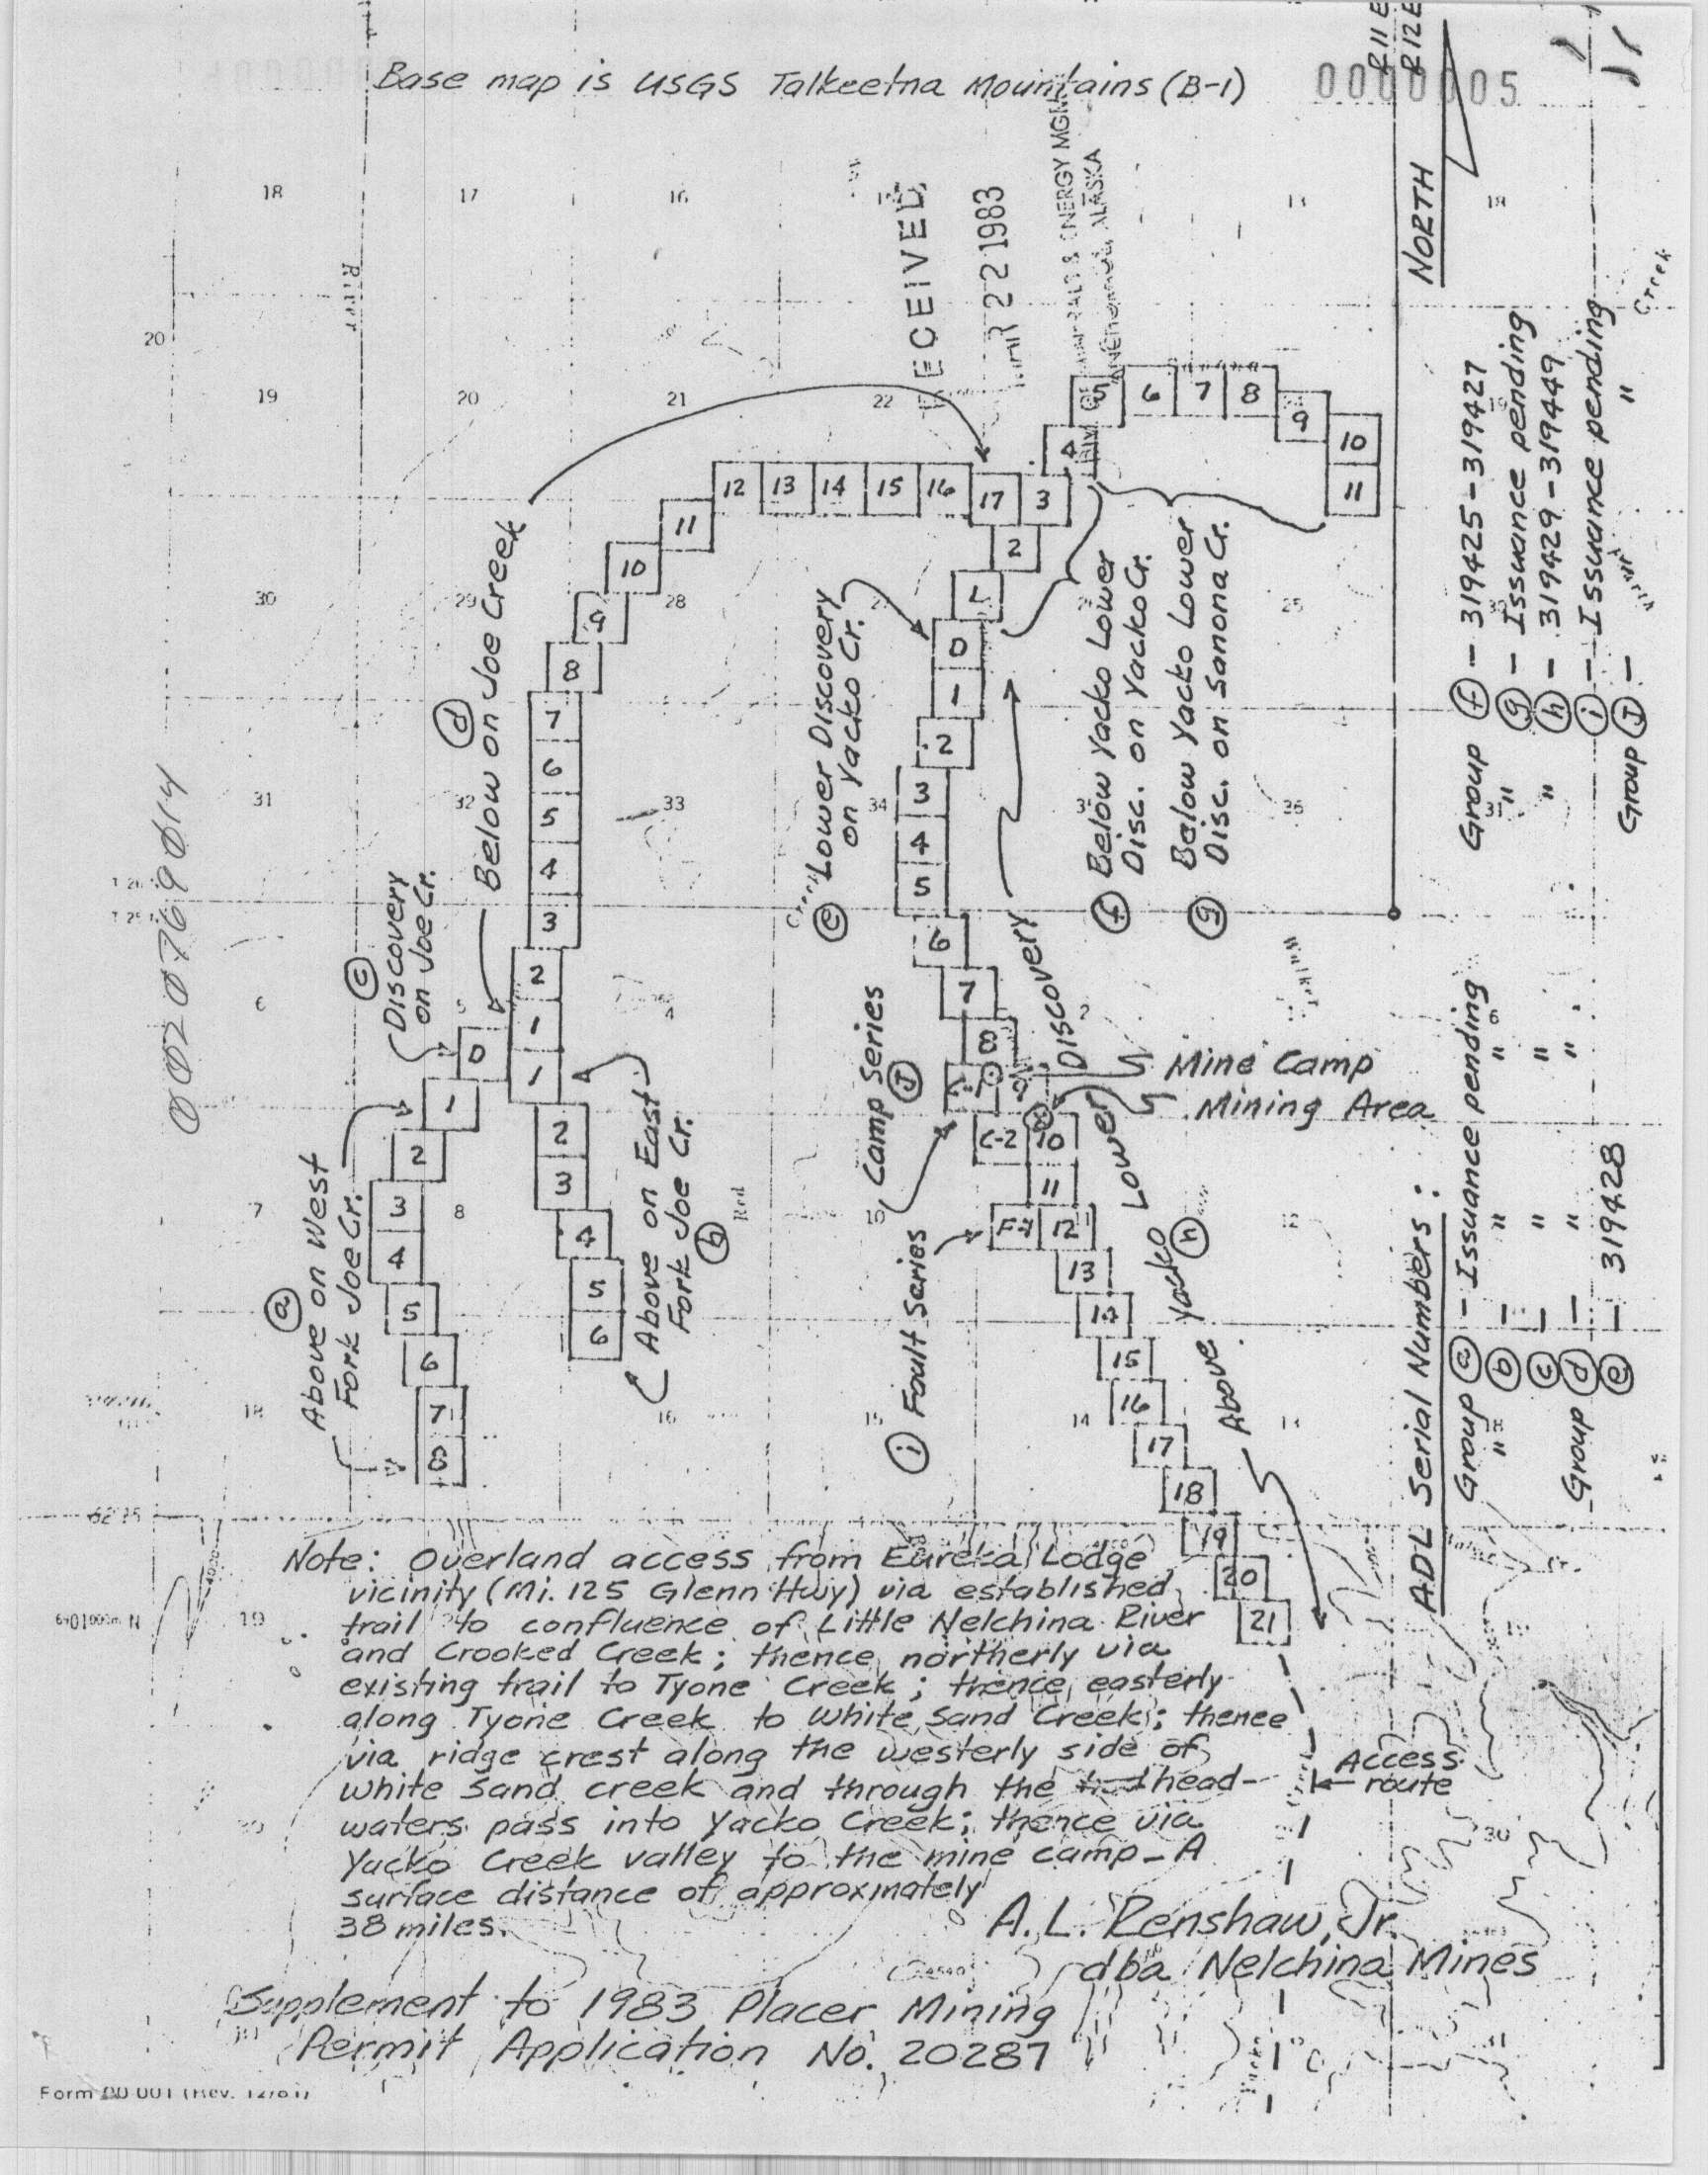 Base map is USGS Talkeetna Mountains (B-1)
0000005
R11E
R12E
18
17
16
13
18
River
ECEIVED
R 22 1983
ENERGY MGM
ALASKA
NORTH
Creek
20
19
20
21
22
5
6
7
8
9
10
11
4
12
13
14
15
16
17
3
2
1
11
10
9
8
7
6
5
4
3
2
1
30
29
28
25
ⓓ
Below on Joe Creek
ⓔ Lower Discovery
on Yacko Cr.
0
1
2
3
4
5
6
7
8
9
10
11
12
13
14
15
16
17
18
19
20
21
31
32
33
34
36
31
ⓕ Below Yacko Lower
Disc. on Yacko Cr.
ⓖ Below Yacko Lower
Disc. on Sanona Cr.
Group ⓕ - 319425-319427
" ⓖ - Issuance pending
" ⓗ - 319429-319449
ⓘ - Issuance pending
Group Ⓙ - "
0020769014
ⓒ
Discovery
on Joe Cr.
0
6
5
4
2
6
ⓐ
Above on West
Fork Joe Cr.
1
2
3
4
5
6
7
8
7
8
1
2
3
4
5
6
Above on East
Fork Joe Cr.
ⓑ
Red
Camp Series
Ⓙ
C-2
Mine Camp
Mining Area
ⓘ Fault Series
F-1
Above Yacko Lower Discovery
ⓗ
18
16
15
14
13
18
ADL Serial Numbers:
Group ⓐ - Issuance pending
" ⓑ - " "
ⓒ - " "
Group ⓓ - " "
ⓔ - 319428
19
Note: Overland access from Eureka Lodge
vicinity (Mi. 125 Glenn Hwy) via established
trail to confluence of Little Nelchina River
and Crooked Creek; thence northerly via
existing trail to Tyone Creek; thence easterly
along Tyone Creek to White Sand Creek; thence
via ridge crest along the westerly side of
White Sand Creek and through the head-
waters pass into Yacko Creek; thence via
Yacko Creek valley to the mine camp - A
surface distance of approxmately
38 miles.
Access
route
30
A.L. Renshaw, Jr.
dba Nelchina Mines
Supplement to 1983 Placer Mining
Permit Application No. 20287